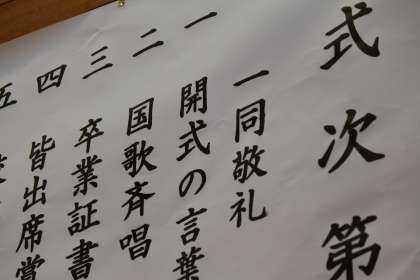 式次第
一 一同敬礼
二 開式の言葉
三 国歌斉唱
四 卒業証書
五 皆出席賞